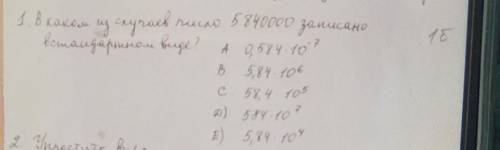 1. В каком из случаев число 5840000 записано
в стандартном виде? 1Б
А 0,584·10⁻⁷
В 5,84·10⁶
С 58,4·10⁵
Д) 584·10⁷
Е) 5,84·10⁴
2. Упростить